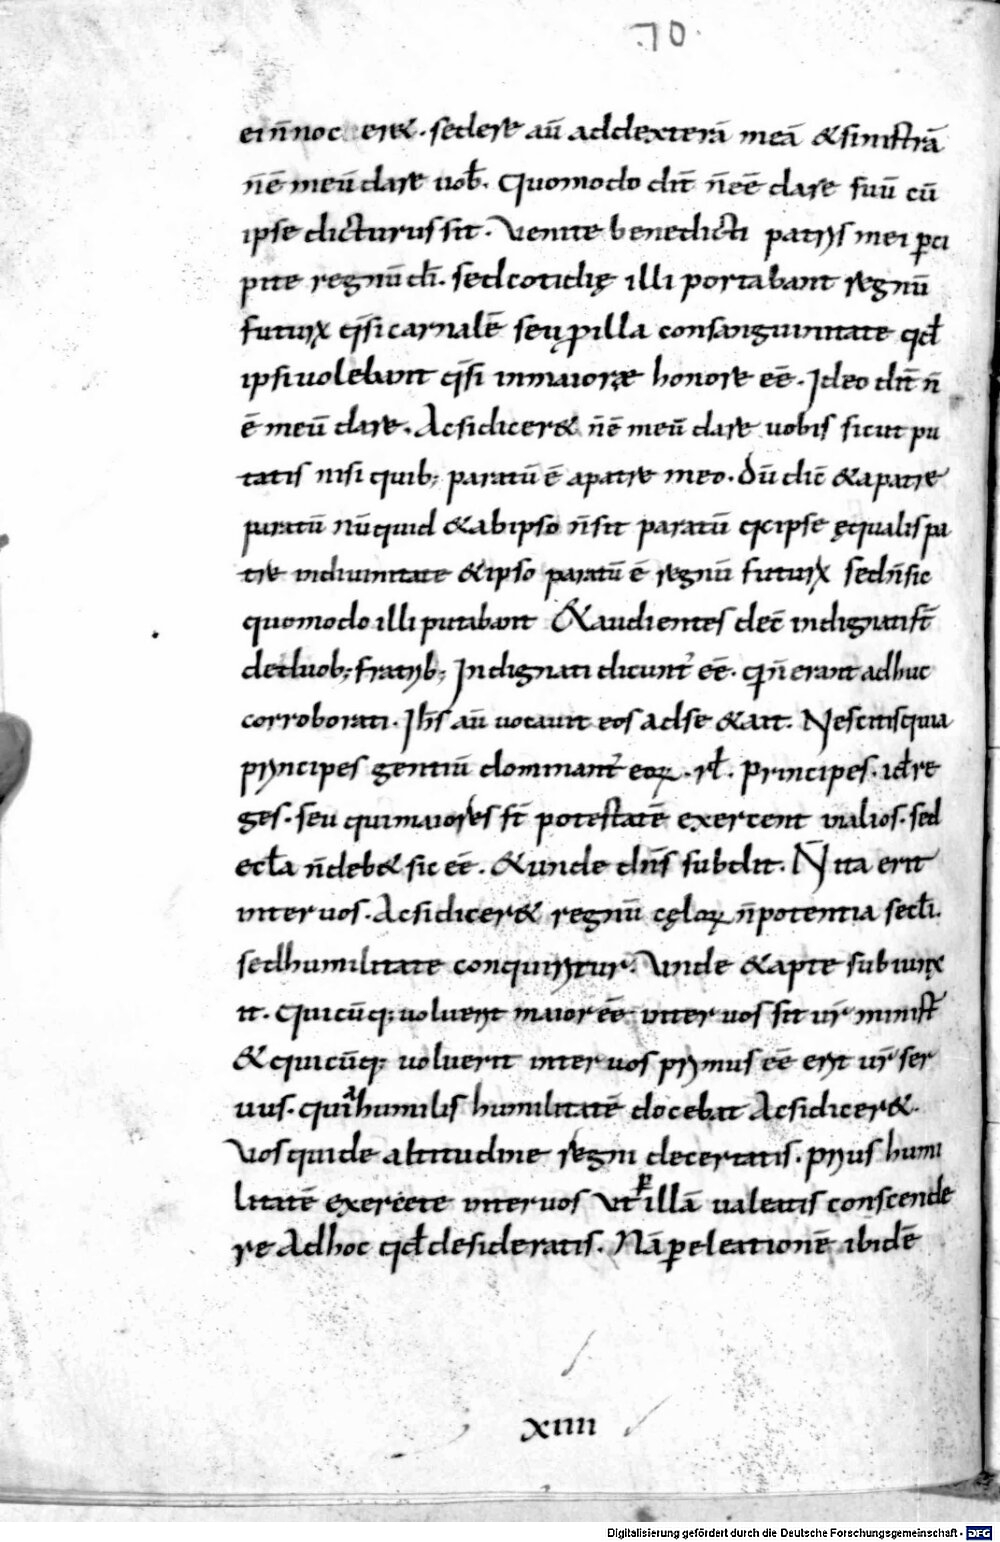 .70.
ei n̄ noc eret. sedere aū addexterā meā & sinistrā
n̄ ē meū dare uob̄. Quomodo dic̄ n̄ eē dare suū cū
ipse dicturus sit. Venite benedicti patris mei ꝑci
pite regnū dī. sed cotidię illi portabant regnū
futurꝝ q̄si carnalē seu ꝓ illa consanguinitate qđ
ipsi uolebant q̄si inmaiore honore eē. Ideo dic̄ n̄
ē meū dare. Acsi dicer& n̄ ē meū dare uobis sicut pu
tatis nisi quib; paratū ē apatre meo. Dū dic̄ & apatre
paratū nūquid & abipso n̄ sit paratū q̄ ipse ęqualis pa
tre indiuinitate & ipso paratū ē regnū futurꝝ sed n̄ sic
quomodo illi putabant &audientes decē indignati st̄
deduob; fratrib; Indignati dicunt̄ eē. q̄ n̄ erant adhuc
corroborati. Ihs̄ aū uocauit eos adse & ait. Nescitis quia
principes gentiū dominant̄ eoꝝ. rł. Principes. id re
ges. seu qui maiores st̄ potestatē exercent inalios. sed
eccła n̄ deb& sic eē. & unde dn̄s subdit. N̄ ita erit
inter uos. Acsi dicer& regnū cęloꝝ n̄ potentia secłi.
sed humilitate conquiritur. Vnde & apte subiunx
it. Quicūq; uoluerit maior eē inter uos sit ur̄ minist̄
& quicūq; uoluerit inter uos primus eē erit ur̄ ser
uus. quia humilis humilitatē docebat Acsi dicer&.
Vos quide altitudine regni decertatis. prius humi
litatē exercete inter uos Vt ꝑ illā ualeatis conscende
re Adhoc qđ desideratis. Nā ꝑ eleationē ibidē
xiiii
Digitalisierung gefördert durch die Deutsche Forschungsgemeinschaft - DFG